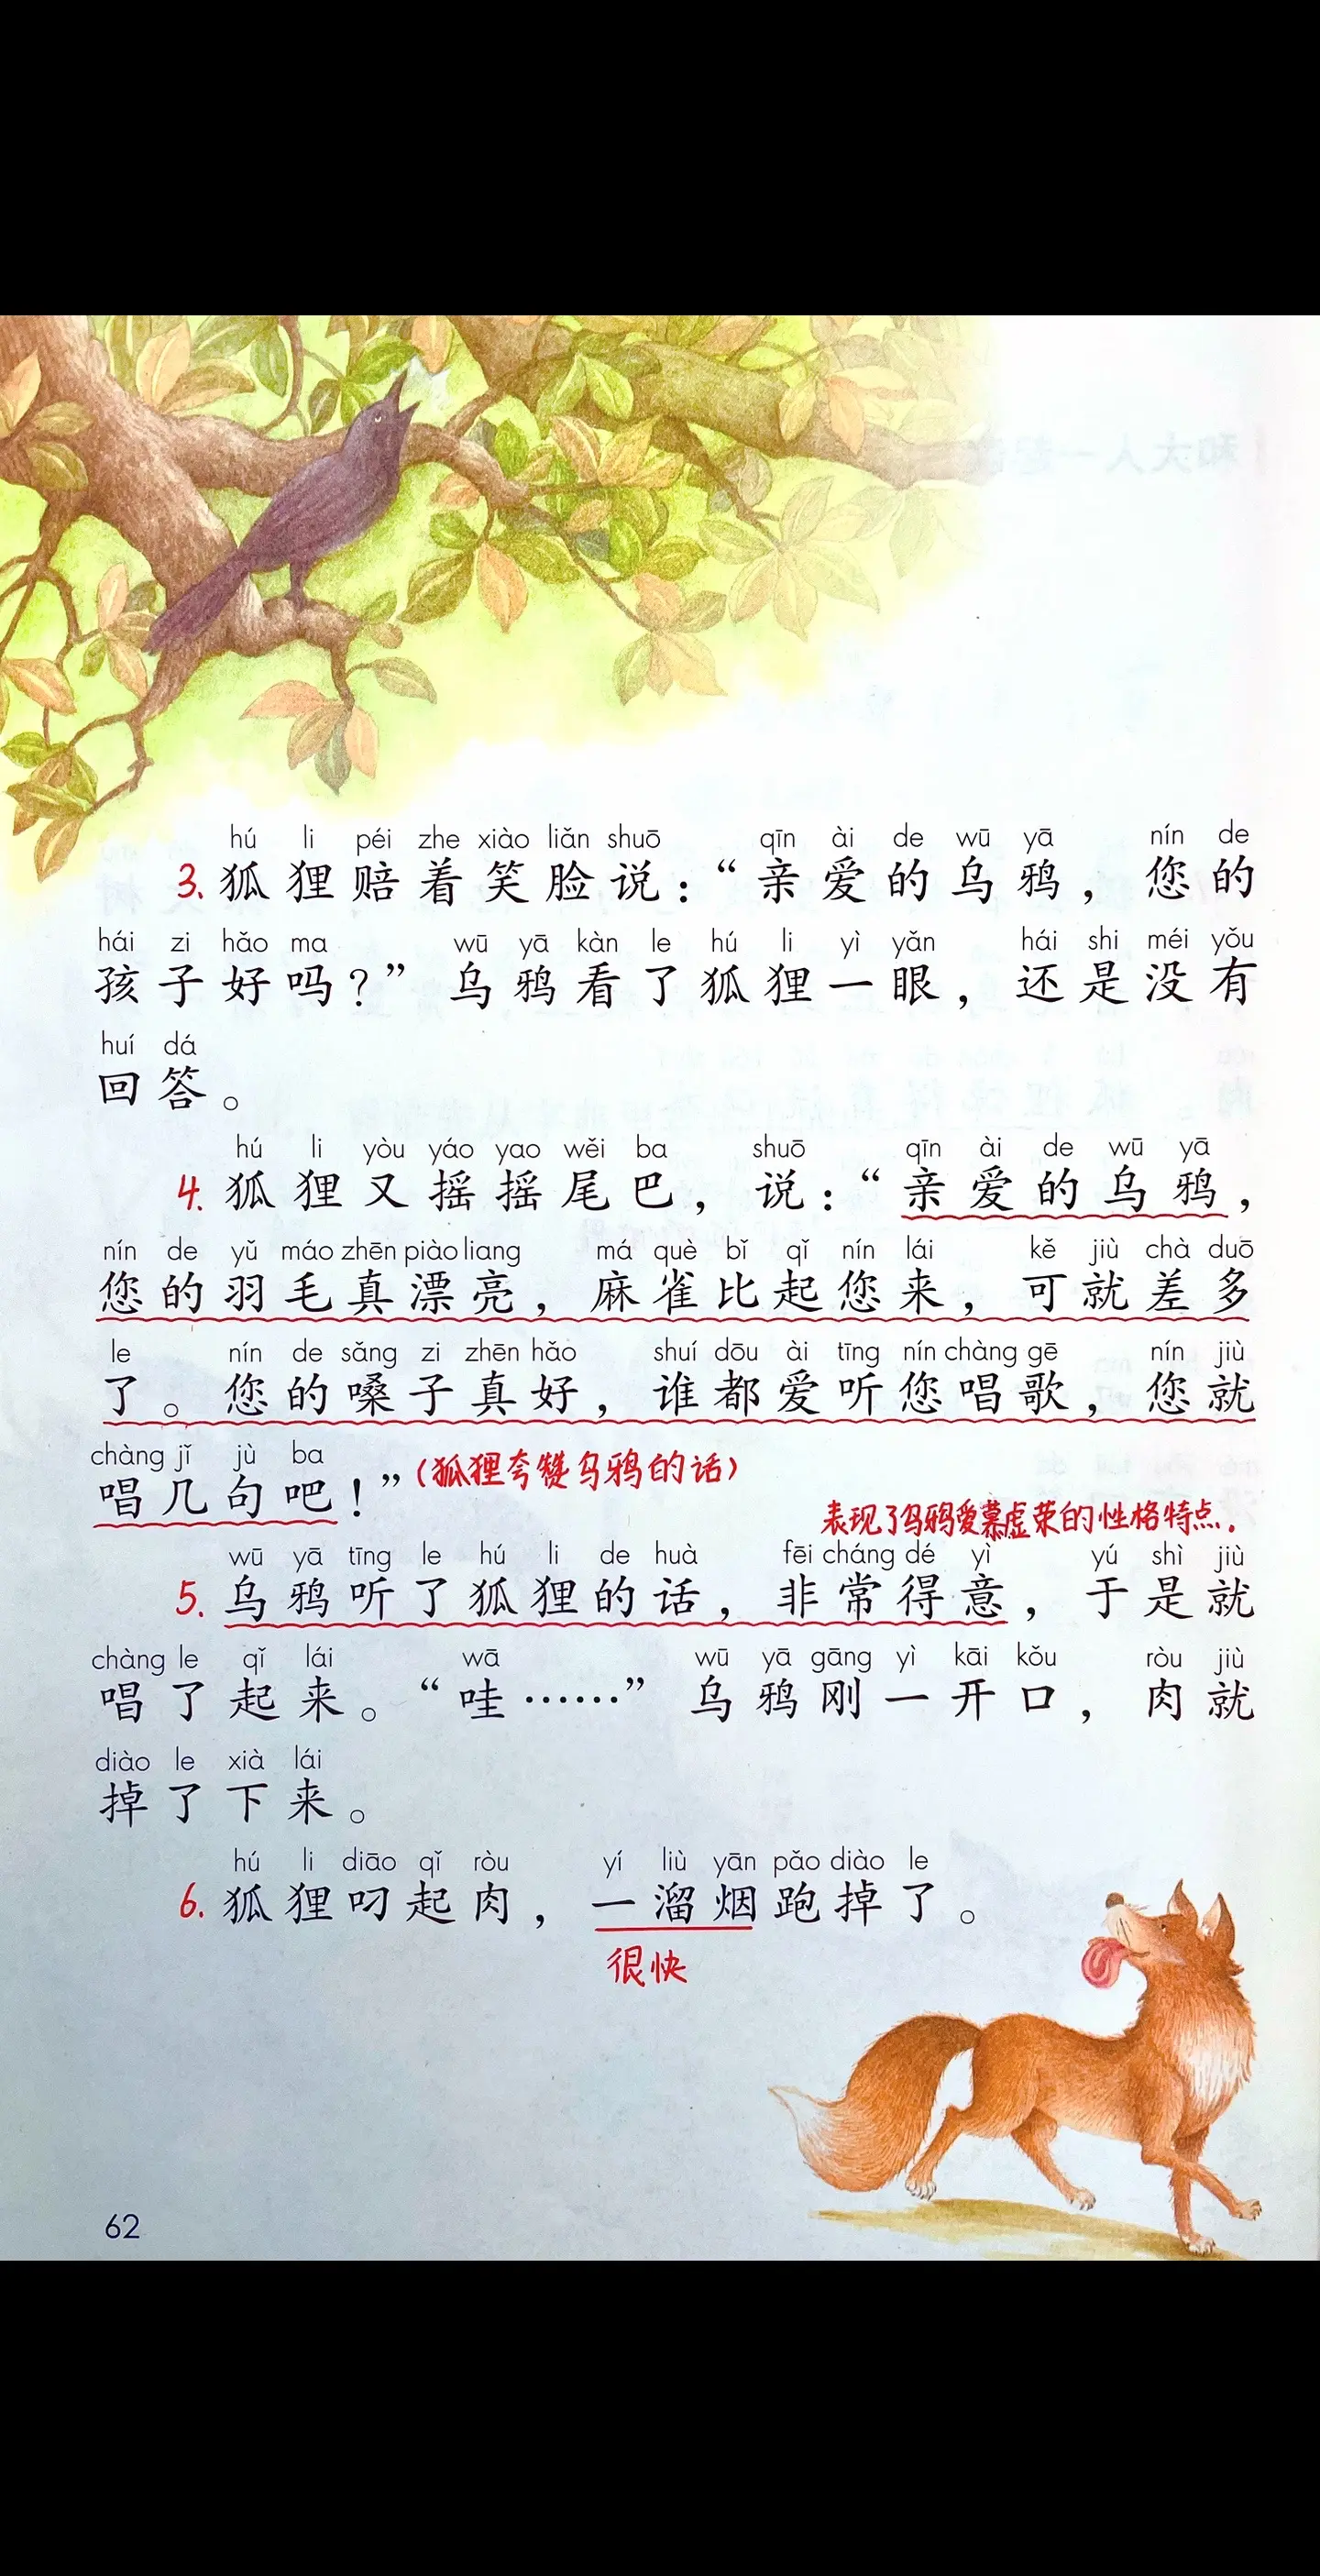 hú li péi zhe xiào liǎn shuō qīn ài de wū yā nín de
3. 狐狸赔着笑脸说：“亲爱的乌鸦，您的
hái zi hǎo ma wū yā kàn le hú li yì yǎn hái shi méi yǒu
孩子好吗？”乌鸦看了狐狸一眼，还是没有
huí dá
回答。
hú li yòu yáo yao wěi ba shuō qīn ài de wū yā
4. 狐狸又摇摇尾巴，说：“亲爱的乌鸦，
nín de yǔ máo zhēn piào liang má què bǐ qǐ nín lái kě jiù chà duō
您的羽毛真漂亮，麻雀比起您来，可就差多
le nín de sǎng zi zhēn hǎo shuí dōu ài tīng nín chàng gē nín jiù
了。您的嗓子真好，谁都爱听您唱歌，您就
chàng jǐ jù ba
唱几句吧！”（狐狸夸赞乌鸦的话）
表现了乌鸦爱慕虚荣的性格特点.
wū yā tīng le hú li de huà fēi cháng dé yì yú shì jiù
5. 乌鸦听了狐狸的话，非常得意，于是就
chàng le qǐ lái wā wū yā gāng yì kāi kǒu ròu jiù
唱了起来。“哇……”乌鸦刚一开口，肉就
diào le xià lái
掉了下来。
hú li diāo qǐ ròu yí liù yān pǎo diào le
6. 狐狸叼起肉，一溜烟跑掉了。
很快
62